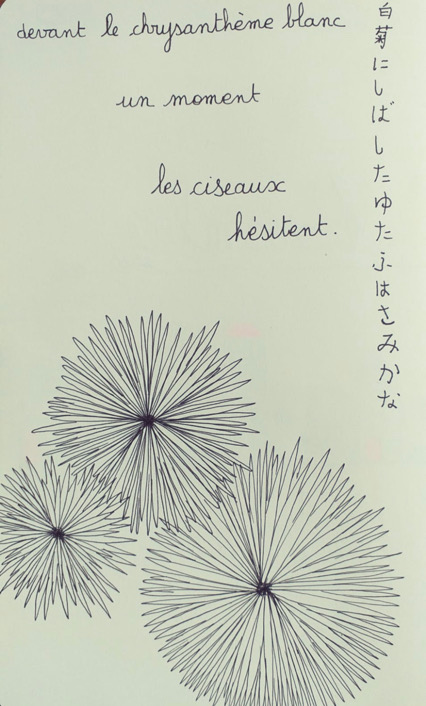 devant le chrysanthème blanc
un moment
les ciseaux
hésitent.
白菊にしばしたゆたふはさみかな